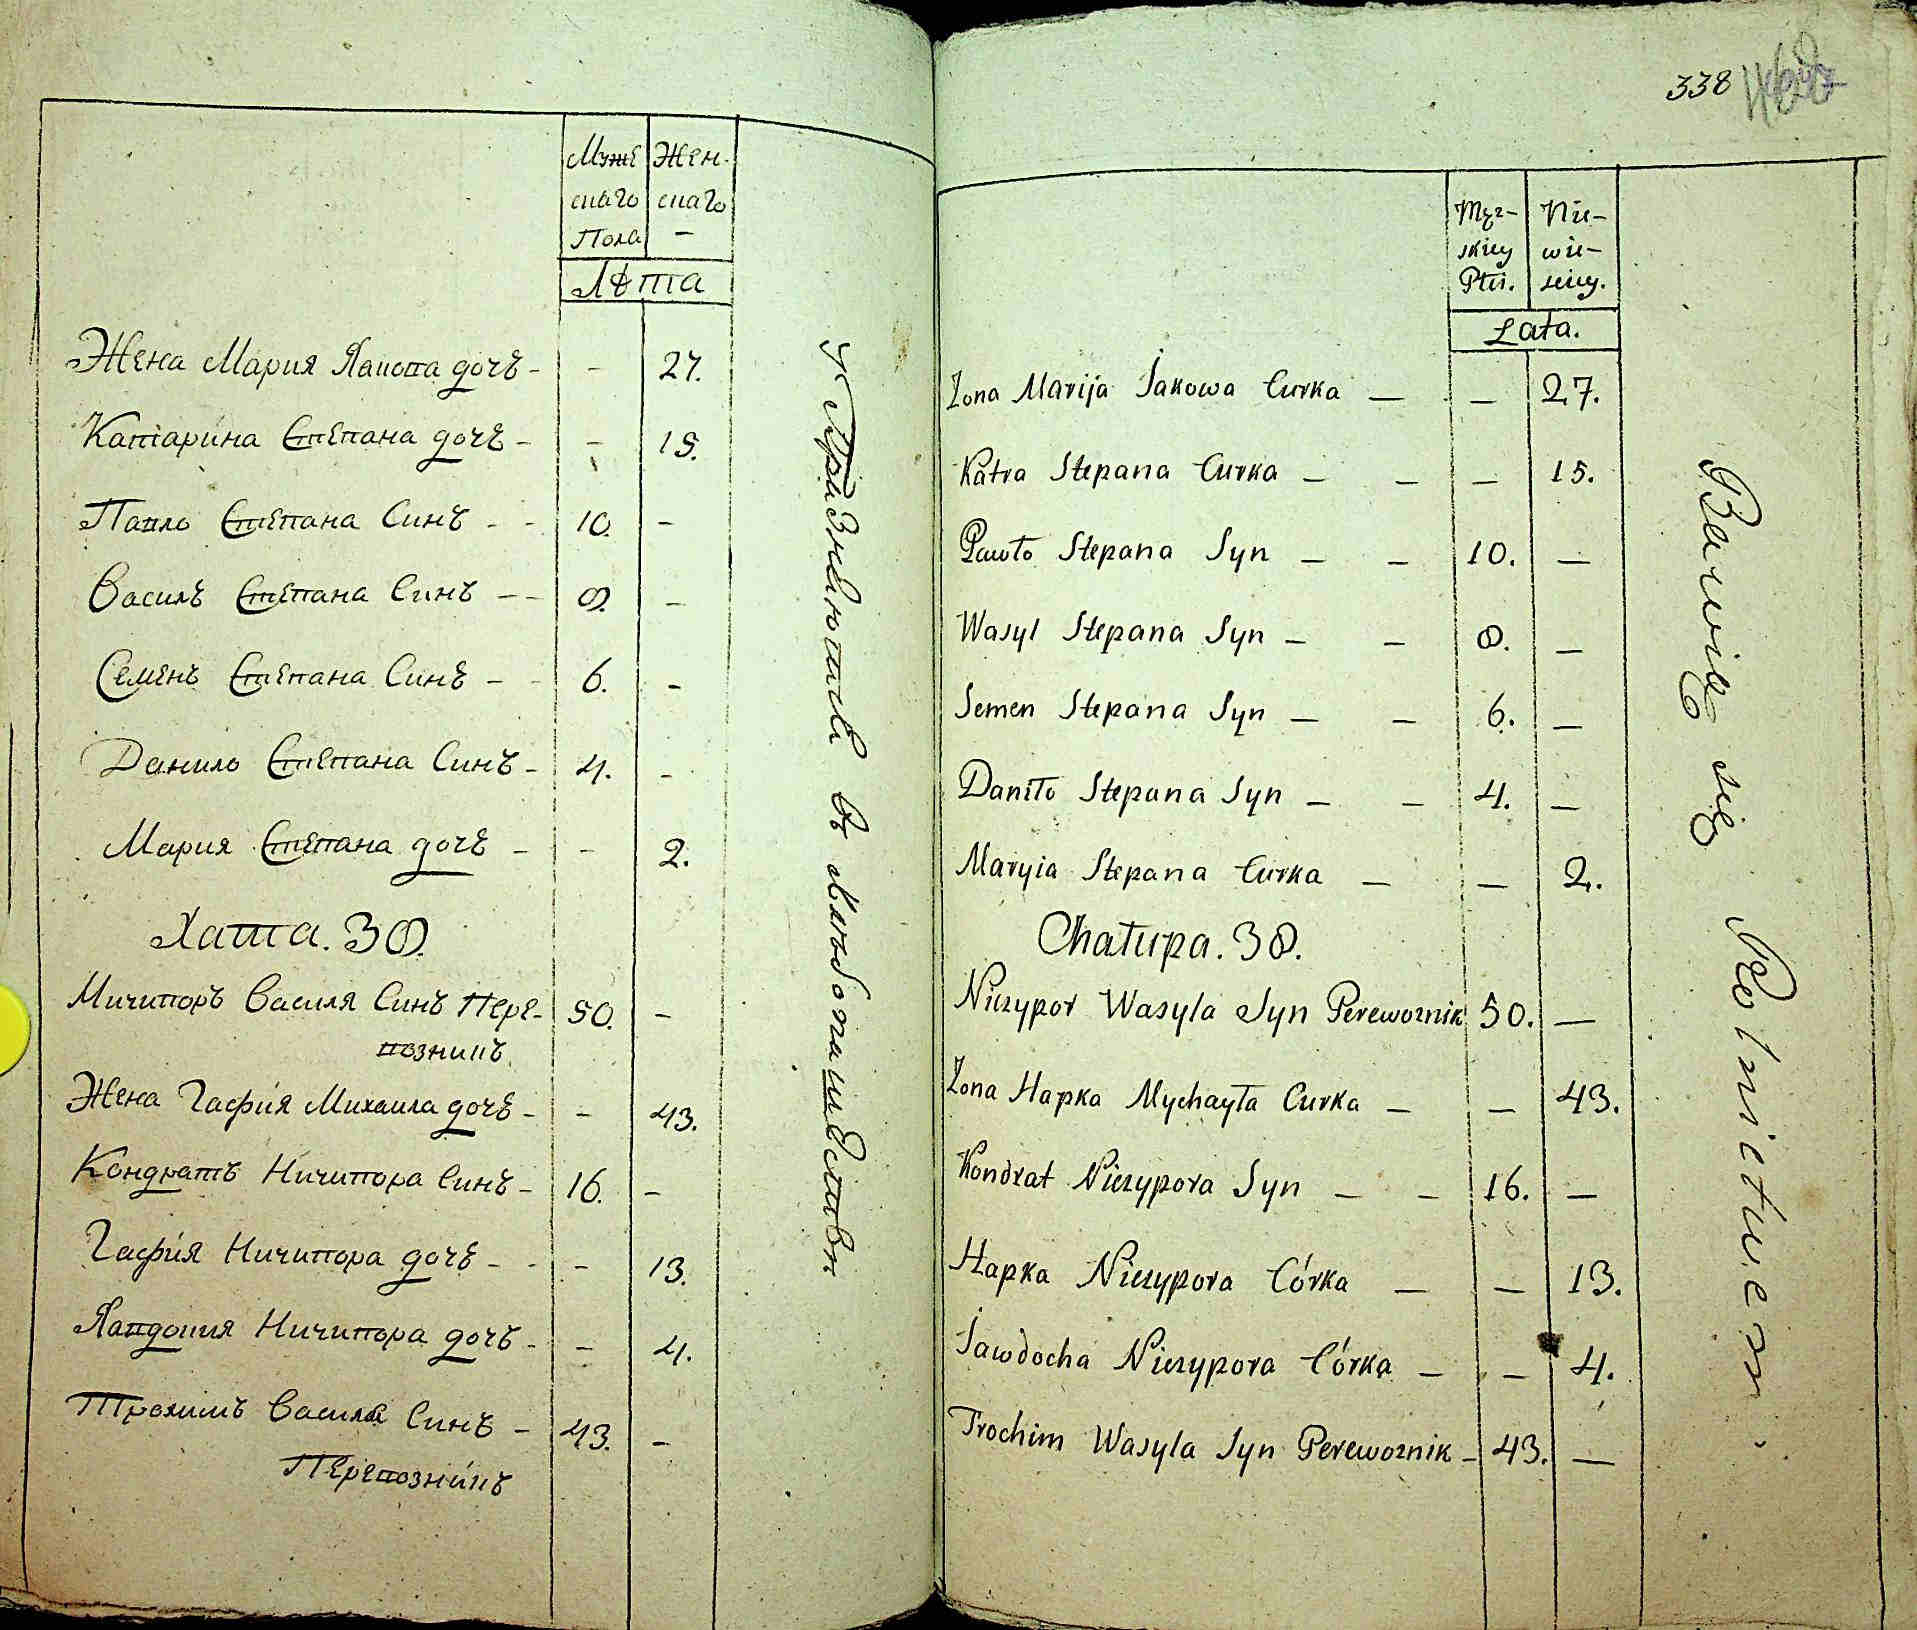 Муже
скаго
Пола
Жен-
скаго
—
Лѣта
Жена Мария Якова дочъ - - 27.
Катарина Степана дочъ - - 15.
Павло Степана Синъ - - 10. -
Василъ Степана Синъ - - 8. -
Семенъ Степана Синъ - - 6. -
Данило Степана Синъ - 4. -
Мария Степана дочъ - - 2.
Хата. 38.
Ничипоръ Василя Синъ Пере- 50. -
возникъ
Жена Гафия Михаила дочъ - - 43.
Кондратъ Ничипора Синъ - 16. -
Гафия Ничипора дочъ - - - 13.
Явдокия Ничипора дочъ - - 4.
Трохимъ Василя Синъ - 43. -
Перевозникъ
въ хлѣбопашествѣ
338
Męz-
skiey
Płci.
Nie-
wie-
sciey.
Lata.
Zona Marija Jakowa Curka — — 27.
Katra Stepana Curka — — — 15.
Pawło Stepana Syn — — 10. —
Wasyl Stepana Syn — — 8. —
Semen Stepana Syn — — 6. —
Daniło Stepana Syn — — 4. —
Maryia Stepana Curka — — 2.
Chałupa. 38.
Niczypor Wasyla Syn Perewoznik 50. —
Zona Hapka Mychayła Curka — — 43.
Kondrat Niczypora Syn — — 16. —
Hapka Niczypora Córka — — 13.
Jawdocha Niczypora Córka — — 4.
Trochim Wasyla Syn Perewoznik — 43. —
Bawią się Rolnictwem.